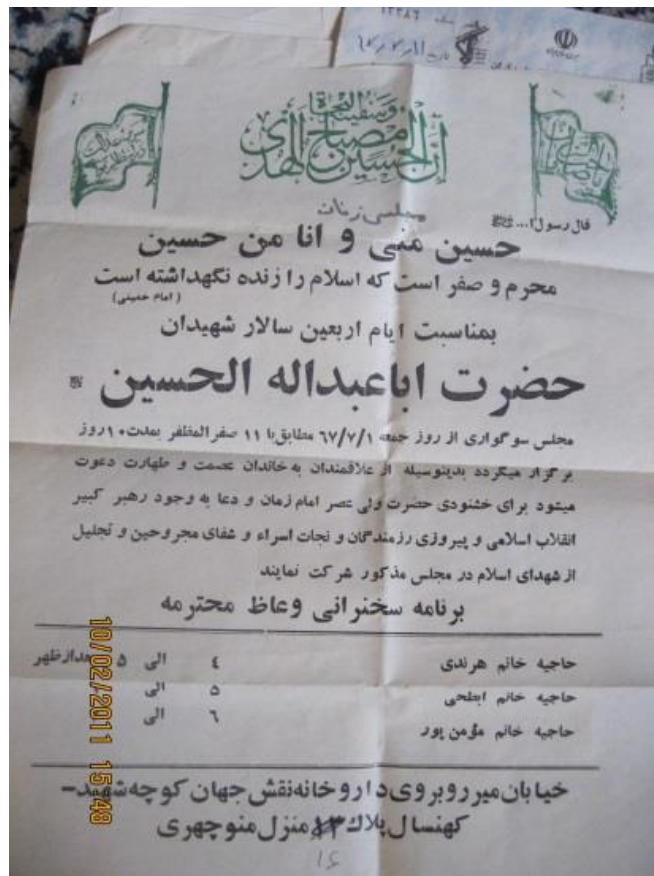 ۱۲۳۸۶
تاریخ ۶۷/۷/۱۱
ان الحسین مصباح الهدی
و سفینة النجاة
مجلس زنان
قال رسول ا...
حسین منی و انا من حسین
محرم و صفر است که اسلام را زنده نگهداشته است
(امام خمینی)
بمناسبت ایام اربعین سالار شهیدان
حضرت اباعبداله الحسین
مجلس سوگواری از روز جمعه ۶۷/۷/۱ مطابق با ۱۱ صفرالمظفر بمدت ۱۰ روز
برگزار میگردد بدینوسیله از علاقمندان به خاندان عصمت و طهارت دعوت
میشود برای خشنودی حضرت ولی عصر امام زمان و دعا به وجود رهبر کبیر
انقلاب اسلامی و پیروزی رزمندگان و نجات اسراء و شفای مجروحین و تجلیل
از شهدای اسلام در مجلس مذکور شرکت نمایند
برنامه سخنرانی وعاظ محترمه
حاجیه خانم هرندی ٤ الی ۵ بعدازظهر
حاجیه خانم ابطحی ۵ الی
حاجیه خانم مؤمن پور ٦ الی
خیابان میر روبروی داروخانه نقش جهان کوچه شهید -
کهنسال پلاک ۱۳ منزل منوچهری
۱۶
10/02/2011 15:48